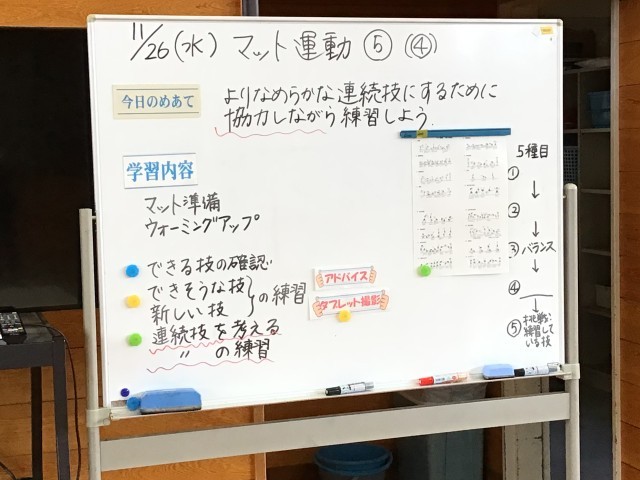 11/26(水) マット運動 ⑤ (④)
今日のめあて
よりなめらかな連続技にするために
協力しながら練習しよう.
学習内容
マット準備
ウォーミングアップ
できる技の確認
できそうな技
新しい技
}の練習
連続技を考える
〃 の練習
アドバイス
タブレット撮影
5種目
①
↓
②
↓
③バランス
↓
④
⑤挑戦
練習して
いる技